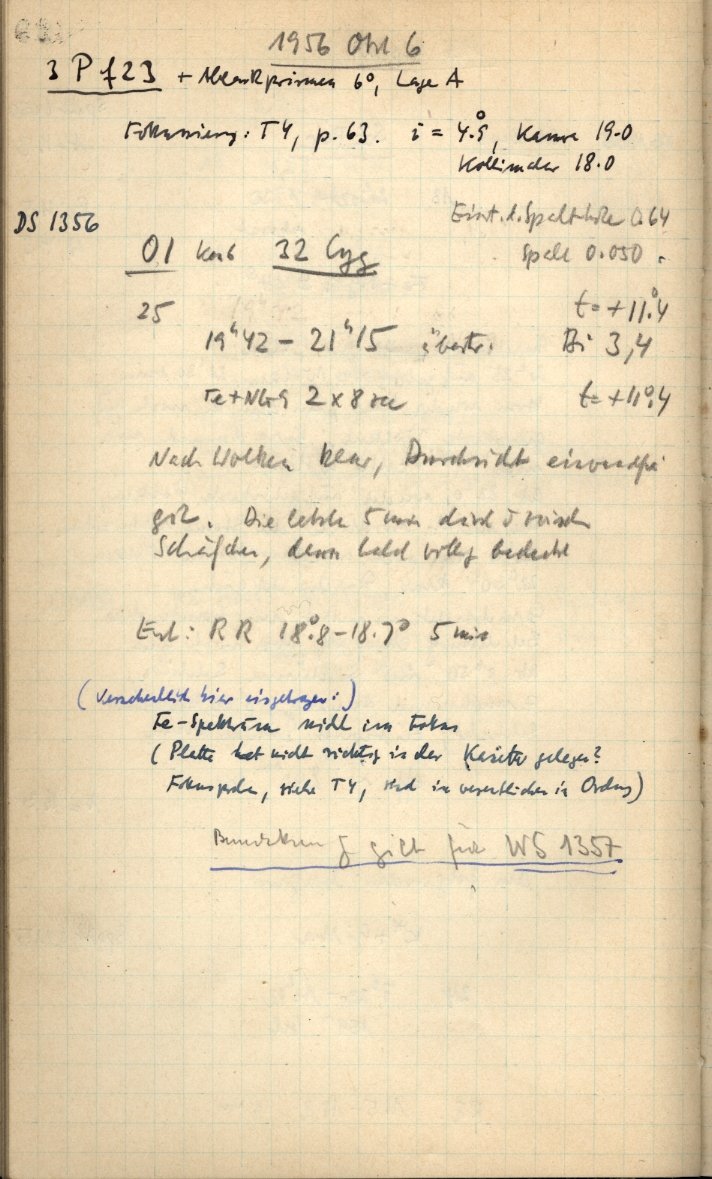 1956 Okt 6
3 P f23 + Ablenkprismen 6°, Lage A
Fokussierung: T4, p. 63. i = 4.°9, Kamera 19.0
Kollimator 18.0
DS 1356
Einst. d. Spalthöhe 0.64
01 Kass 32 Cyg Spalt 0.050
25 t = +11.°4
19h42 – 21h15 übertr. Bi 3,4
Fe+Ne 2 x 8 sec t = +11.°4
Nach Wolken klar, Durchsicht einwandfrei
gut. Die letzten 5 min durch
Schäfchen, dann bald völlig bedeckt
Ent: RR 18.°8–18.7° 5 min
(Versehentlich hier eingetragen:)
Fe-Spektrum nicht im Fokus
(Platte hat nicht richtig in der Kasette gelegen?
Fokusproben, siehe T4, sind im wesentlichen in Ordng)
Bemerkung gilt für WS 1357